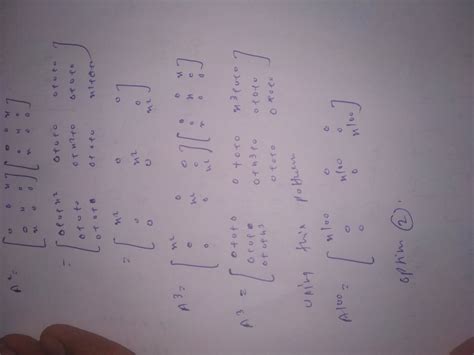 A² = [0 0 x] [0 0 x]
[0 x 0] [0 x 0]
[x 0 0] [x 0 0]
= [0+0+x² 0+0+0 0+0+0]
[0+0+0 0+x²+0 0+0+0]
[0+0+0 0+0+0 x²+0+0]
= [x² 0 0]
[0 x² 0]
[0 0 x²]
A³ = [x² 0 0] [0 0 x]
[0 x² 0] [0 x 0]
[0 0 x²] [x 0 0]
A³ = [0+0+0 0+0+0 x³+0+0]
[0+0+0 0+x³+0 0+0+0]
[0+0+x³ 0+0+0 0+0+0]
using this pattern
A¹⁰⁰ = [x¹⁰⁰ 0 0]
[0 x¹⁰⁰ 0]
[0 0 x¹⁰⁰]
option (2).